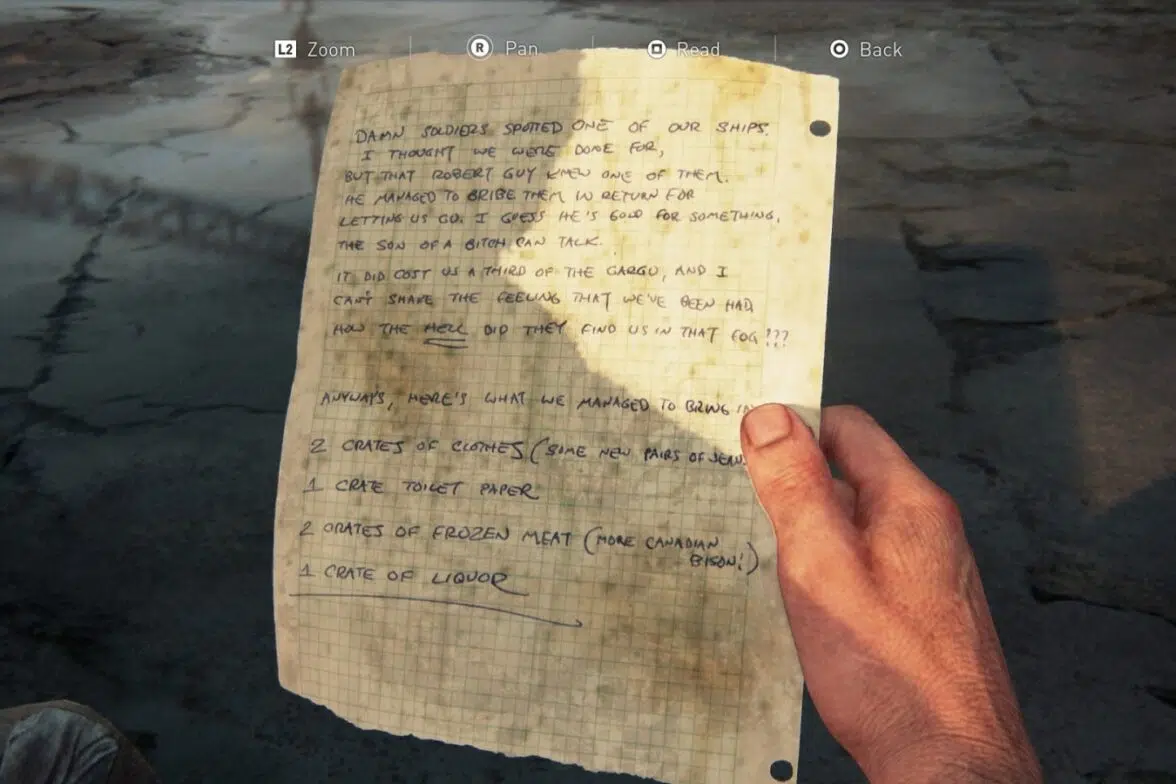 L2 Zoom R Pan Read Back
DAMN SOLDIERS SPOTTED ONE OF OUR SHIPS.
I THOUGHT WE WERE DONE FOR,
BUT THAT ROBERT GUY KNEW ONE OF THEM.
HE MANAGED TO BRIBE THEM IN RETURN FOR
LETTING US GO. I GUESS HE'S GOOD FOR SOMETHING,
THE SON OF A BITCH CAN TALK.
IT DID COST US A THIRD OF THE CARGO, AND I
CAN'T SHAKE THE FEELING THAT WE'VE BEEN HAD
HOW THE HELL DID THEY FIND US IN THAT FOG???
ANYWAYS, HERE'S WHAT WE MANAGED TO BRING IN
2 CRATES OF CLOTHES (SOME NEW PAIRS OF JEANS
1 CRATE TOILET PAPER
2 CRATES OF FROZEN MEAT (MORE CANADIAN
BISON!)
1 CRATE OF LIQUOR